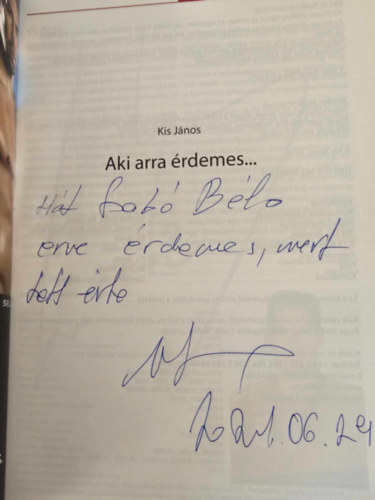 Kis János
Aki arra érdemes...
Hát Szabó Béla
erre érdemes, mert
tett érte
2021.06.29